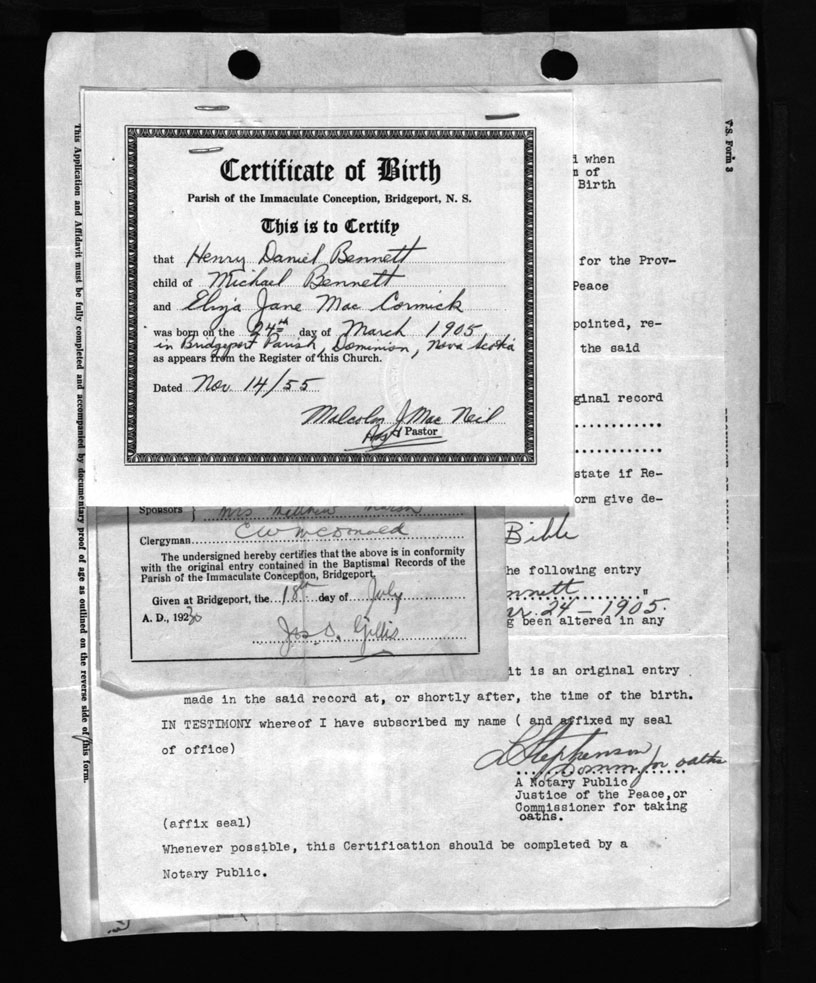 Certificate of Birth
Parish of the Immaculate Conception, Bridgeport, N. S.
This is to Certify
that Henry Daniel Bennett
child of Michael Bennett
and Eliza Jane Mac Cormick
was born on the 24th day of March 1905
in Bridgeport Parish, Dominion, Nova Scotia
as appears from the Register of this Church.
Dated Nov 14/55
Malcolm J Mac Neil
Asst Pastor
Sponsors Mrs
Clergyman C W McDonald
The undersigned hereby certifies that the above is in conformity
with the original entry contained in the Baptismal Records of the
Parish of the Immaculate Conception, Bridgeport,
Given at Bridgeport, the 18th day of July
A. D., 1930
Jos. D. Gillis
d when
of
Birth
for the Prov-
Peace
pointed, re-
the said
ginal record
state if Re-
orm give de-
Bible
he following entry
nnett "
ar. 24 - 1905.
g been altered in any
it is an original entry
made in the said record at, or shortly after, the time of the birth.
IN TESTIMONY whereof I have subscribed my name ( and affixed my seal
of office)
L Stephenson
Comm for oaths
A Notary Public
Justice of the Peace,or
Commissioner for taking
oaths.
(affix seal)
Whenever possible, this Certification should be completed by a
Notary Public.
This Application and Affidavit must be fully completed and accompanied by documentary proof of age as outlined on the reverse side of this form.
V.S. Form 3